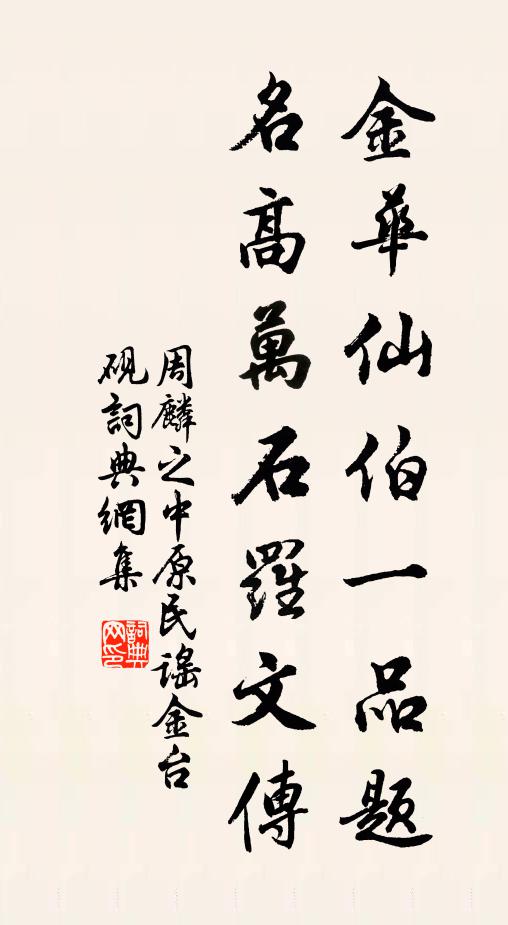 金華仙伯一品题
名高萬石羅文傳
周麟之中原民谣金台
砚詞典網集
詞典網印